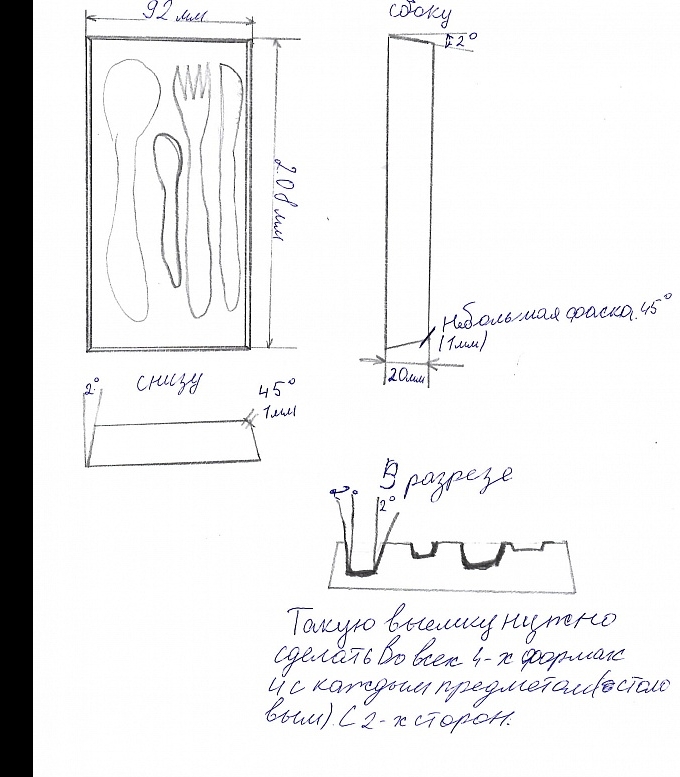 92 мм
сбоку
2°
208 мм
Небольшая фаска 45°
(1мм)
20мм
снизу
2°
45°
1мм
В разрезе
2°
Такую выемку нужно
сделать во всех 4-х формах
и с каждым предметом (столо
вым). С 2-х сторон.